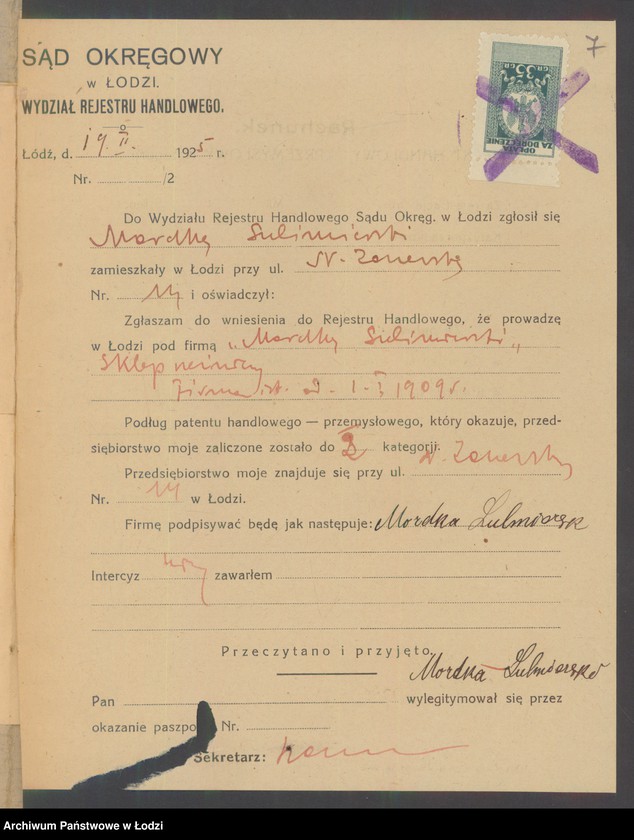 7
SĄD OKRĘGOWY
w ŁODZI.
WYDZIAŁ REJESTRU HANDLOWEGO.
GR 35 GR
OPŁATA
ZA DORĘCZENIE
Łódź, d. 19. II. 1925 r.
Nr. /2
Do Wydziału Rejestru Handlowego Sądu Okręg. w Łodzi zgłosił się
Mordka Sulimierski
zamieszkały w Łodzi przy ul. N-
Nr. i oświadczył:
Zgłaszam do wniesienia do Rejestru Handlowego, że prowadzę
w Łodzi pod firmą „Mordka Sulimierski"
Sklep
Firma ist. od 1-I 1909 r.
Podług patentu handlowego — przemysłowego, który okazuje, przed-
siębiorstwo moje zaliczone zostało do kategorji.
Przedsiębiorstwo moje znajduje się przy ul. N.
Nr. w Łodzi.
Firmę podpisywać będę jak następuje: Mordka
Intercyz zawarłem
Przeczytano i przyjęto.
Mordka
Pan wylegitymował się przez
okazanie paszpo Nr.
Sekretarz:
Archiwum Państwowe w Łodzi